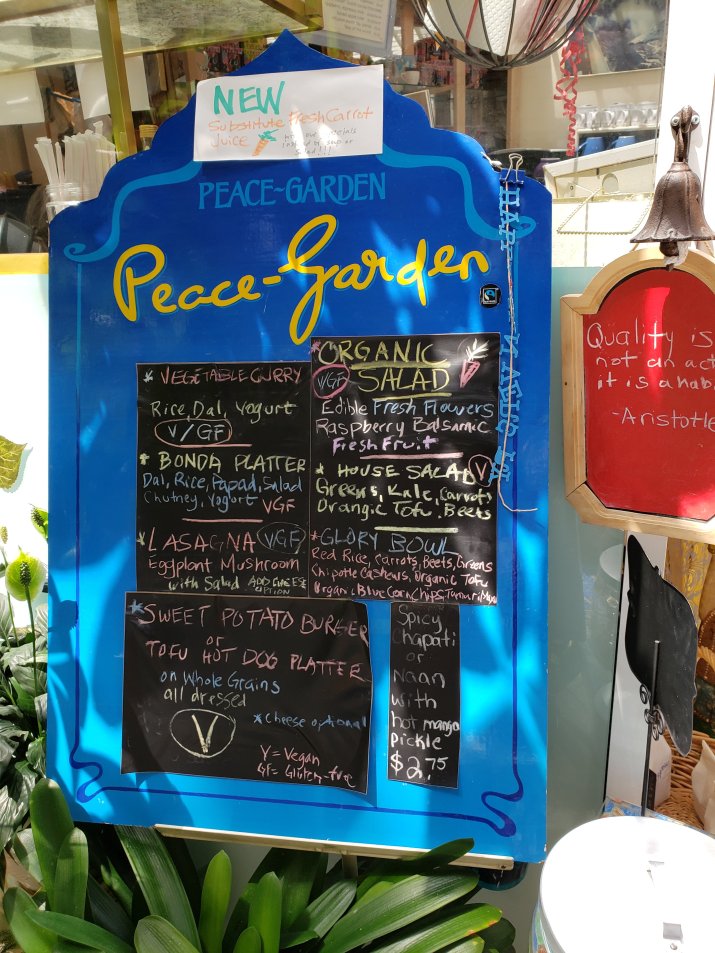 NEW
Substitute Fresh Carrot
Juice
PEACE~GARDEN
Peace-Garden
* VEGETABLE CURRY
Rice, Dal, Yogurt
V/GF
* BONDA PLATTER
Dal, Rice, Papad, Salad
Chutney, Yogurt VGF
* LASAGNA VGF
Eggplant Mushroom
with Salad ADD CHEESE
OPTION
* ORGANIC
VGF SALAD
Edible Fresh Flowers
Raspberry Balsamic
Fresh Fruit
* HOUSE SALAD V
Greens, Kale, Carrots
Orangic Tofu, Beets
* GLORY BOWL
Red Rice, Carrots, Beets, Greens
Chipotle Cashews, Organic Tofu
Organic Blue Corn Chips, Tamari
* SWEET POTATO BURGER
or
TOFU HOT DOG PLATTER
on Whole Grains
all dressed
V
* Cheese optional
V = Vegan
GF = Gluten-free
Spicy
Chapati
or
Naan
with
hot mango
pickle
$2.75
Quality is
not an act
it is a habi
-Aristotle